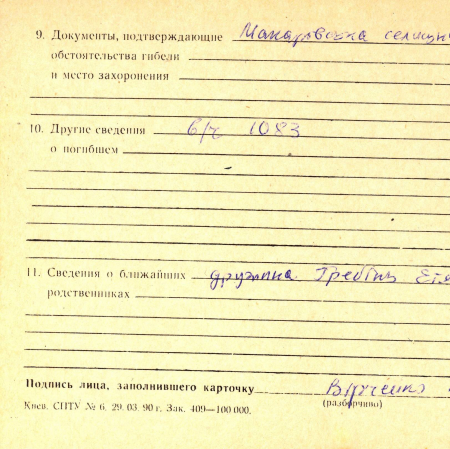 9. Документы, подтверждающие Макарівська селищн
обстоятельства гибели
и место захоронения
10. Другие сведения в/ч 1083
о погибшем
11. Сведения о ближайших дружина Гребінь
родственниках
Подпись лица, заполнившего карточку
(разборчиво)
Киев. СПТУ № 6. 29. 03. 90 г. Зак. 409—100 000.